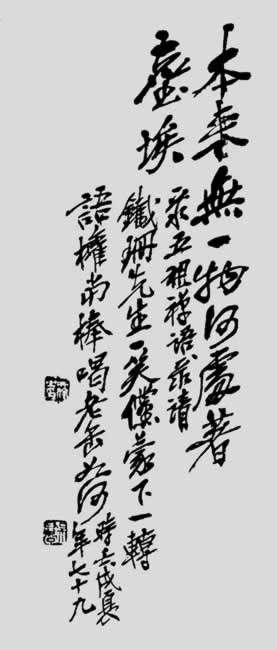 本來無一物何處著
塵埃
录五祖禅語录請
鐵珊先生一笑儻蒙下一轉
語權當棒喝老缶如何
時壬戌夏
年七十九